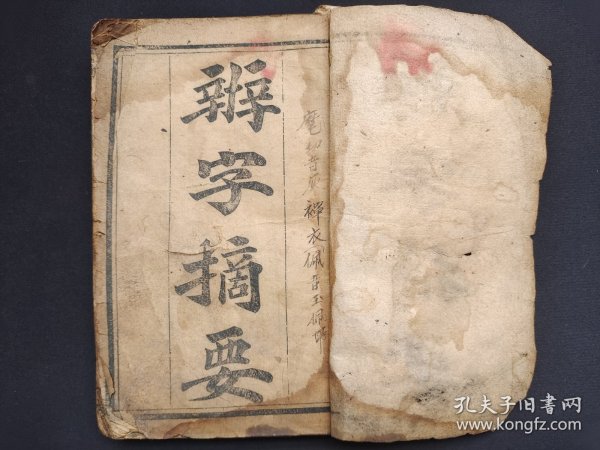 辨字摘要
衣佩
玉
孔夫子旧书网
www.kongfz.com